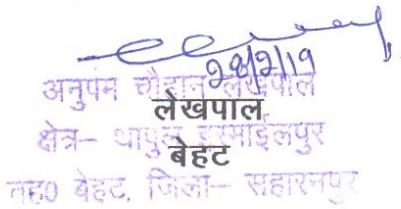 28/2/19
अनुपम चौहान लेखपाल
लेखपाल
क्षेत्र– थापुल इस्माईलपुर
बेहट
तह0 बेहट, जिला– सहारनपुर